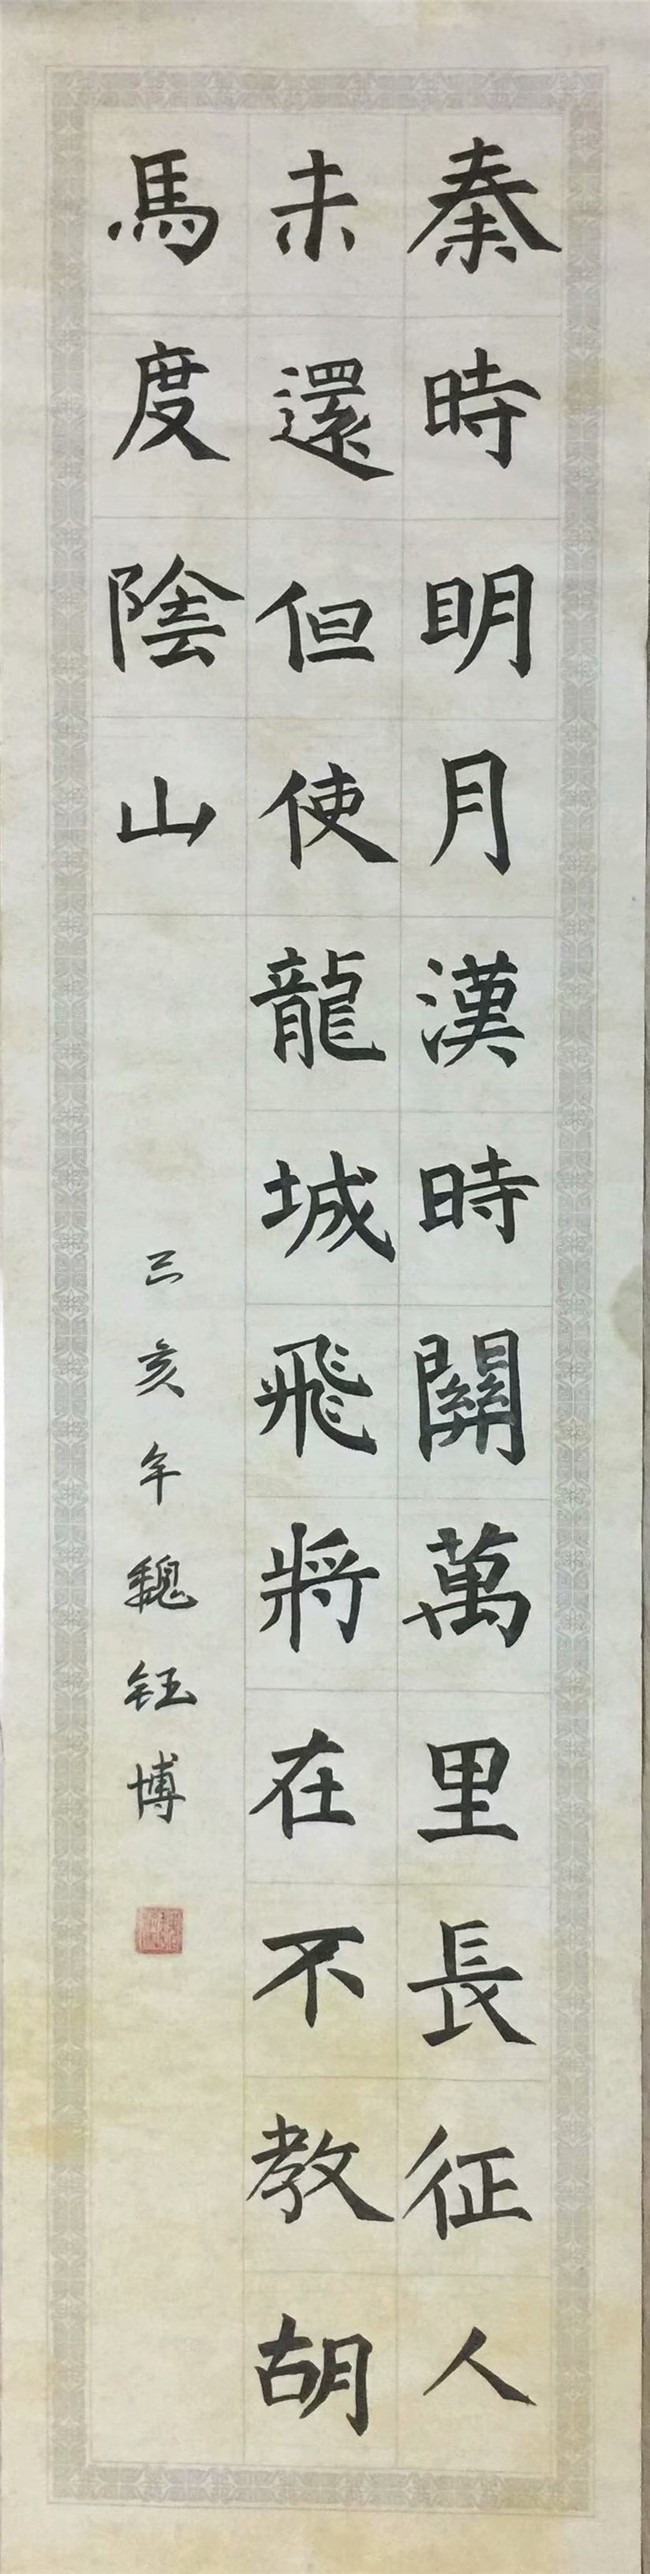 秦時明月漢時關萬里長征人
未還但使龍城飛將在不教胡
馬度陰山
己亥年魏鈺博